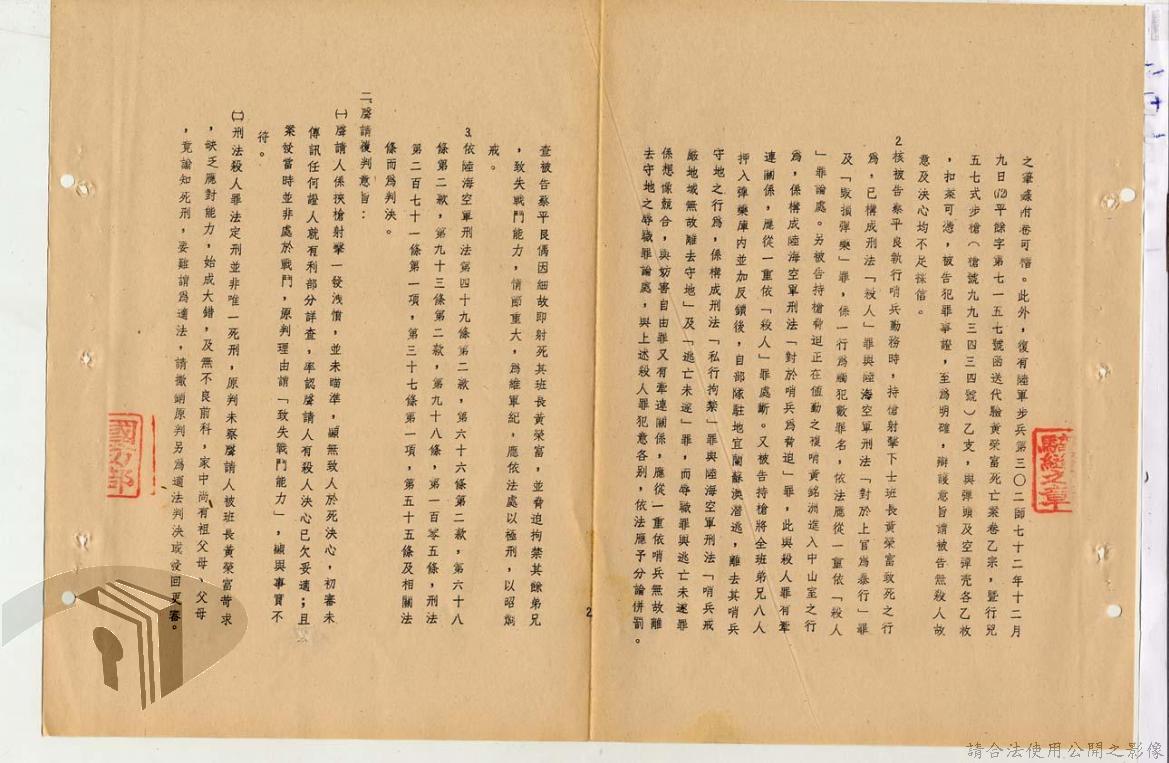 之筆錄附卷可稽。此外，復有陸軍步兵第三〇二師七十二年十二月
九日(72)平餘字第七一五七號函送代驗黃榮富死亡案卷乙宗，暨行兇
五七式步槍（槍號九九三四三四號）乙支，與彈頭及空彈壳各乙枚
，扣案可憑，被告犯罪事證，至為明確，辯護意旨謂被告無殺人故
意及決心均不足採信。
2核被告蔡平良執行哨兵勤務時，持槍射擊下士班長黃榮富致死之行
為，已構成刑法「殺人」罪與陸海空軍刑法「對於上官為暴行」罪
及「毀損彈藥」罪，係一行為觸犯數罪名，依法應從一重依「殺人
」罪論處。另被告持槍脅迫正在值勤之複哨黃銘洲進入中山室之行
為，係構成陸海空軍刑法「對於哨兵為脅迫」罪，此與殺人罪有牽
連關係，應從一重依「殺人」罪處斷。又被告持槍將全班弟兄八人
押入彈藥庫內並加反鎖後，自部隊駐地宜蘭蘇澳潛逃，離去其哨兵
守地之行為，係構成刑法「私行拘禁」罪與陸海空軍刑法「哨兵戒
嚴地域無故離去守地」及「逃亡未遂」罪，而辱職罪與逃亡未遂罪
係想像競合，與妨害自由罪又有牽連關係，應從一重依哨兵無故離
去守地之辱職罪論處，與上述殺人罪犯意各別，依法應予分論併罰。
2
查被告蔡平良偶因細故即射死其班長黃榮富，並脅迫拘禁其餘弟兄
，致失戰鬥能力，情節重大，為維軍紀，應依法處以極刑，以昭炯
戒。
3.依陸海空軍刑法第四十九條第二款，第六十六條第二款，第六十八
條第二款，第九十三條第二款，第九十八條，第一百零五條，刑法
第二百七十一條第一項，第三十七條第一項，第五十五條及相關法
條而為判決。
二、聲請覆判意旨：
㈠聲請人係挾槍射擊一發洩憤，並未瞄準，顯無致人於死決心，初審未
傳訊任何證人就有利部分詳查，率認聲請人有殺人決心已欠妥適；且
案發當時並非處於戰鬥，原判理由謂「致失戰鬥能力」，顯與事實不
符。
㈡刑法殺人罪法定刑並非唯一死刑，原判未察聲請人被班長黃榮富苛求
，缺乏應對能力，始成大錯，及無不良前科，家中尚有祖父母、父母
，竟諭知死刑，委難謂為適法，請撤銷原判另為適法判決或發回更審。
國防部
騎縫之章
請合法使用公開之影像